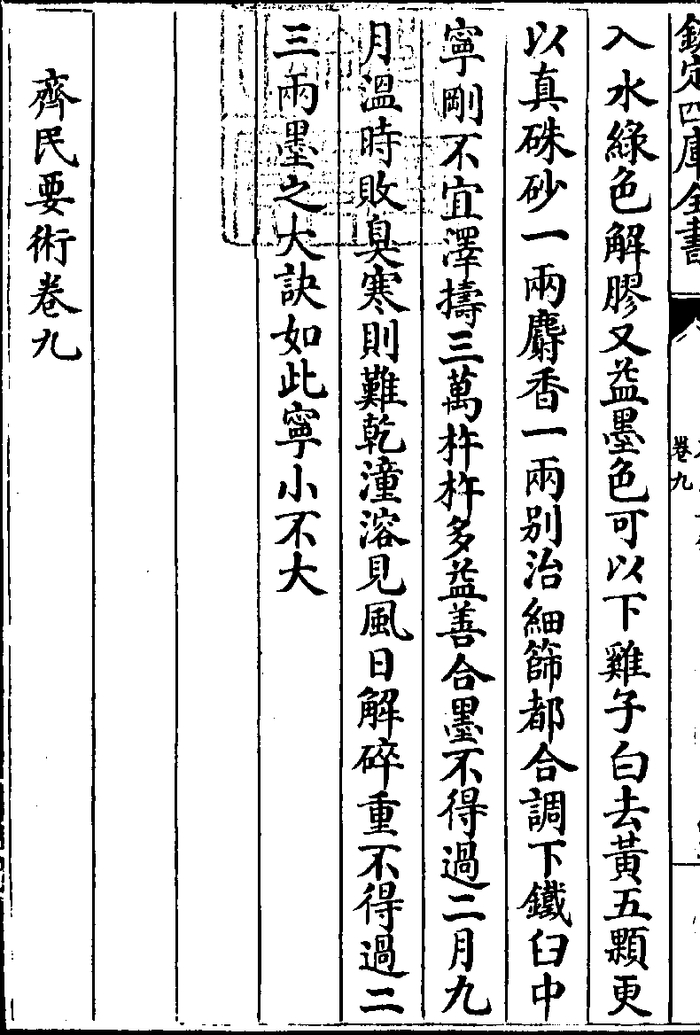 欽定四庫全書
卷九
入水綠色解膠又益墨色可以下雞子白去黃五顆更
以真硃砂一兩麝香一兩别治細篩都合調下鐵臼中
寧剛不宜澤擣三萬杵杵多益善合墨不得過二月九
月溫時敗臭寒則難乾潼溶見風日解碎重不得過二
三兩墨之大訣如此寧小不大
齊民要術卷九